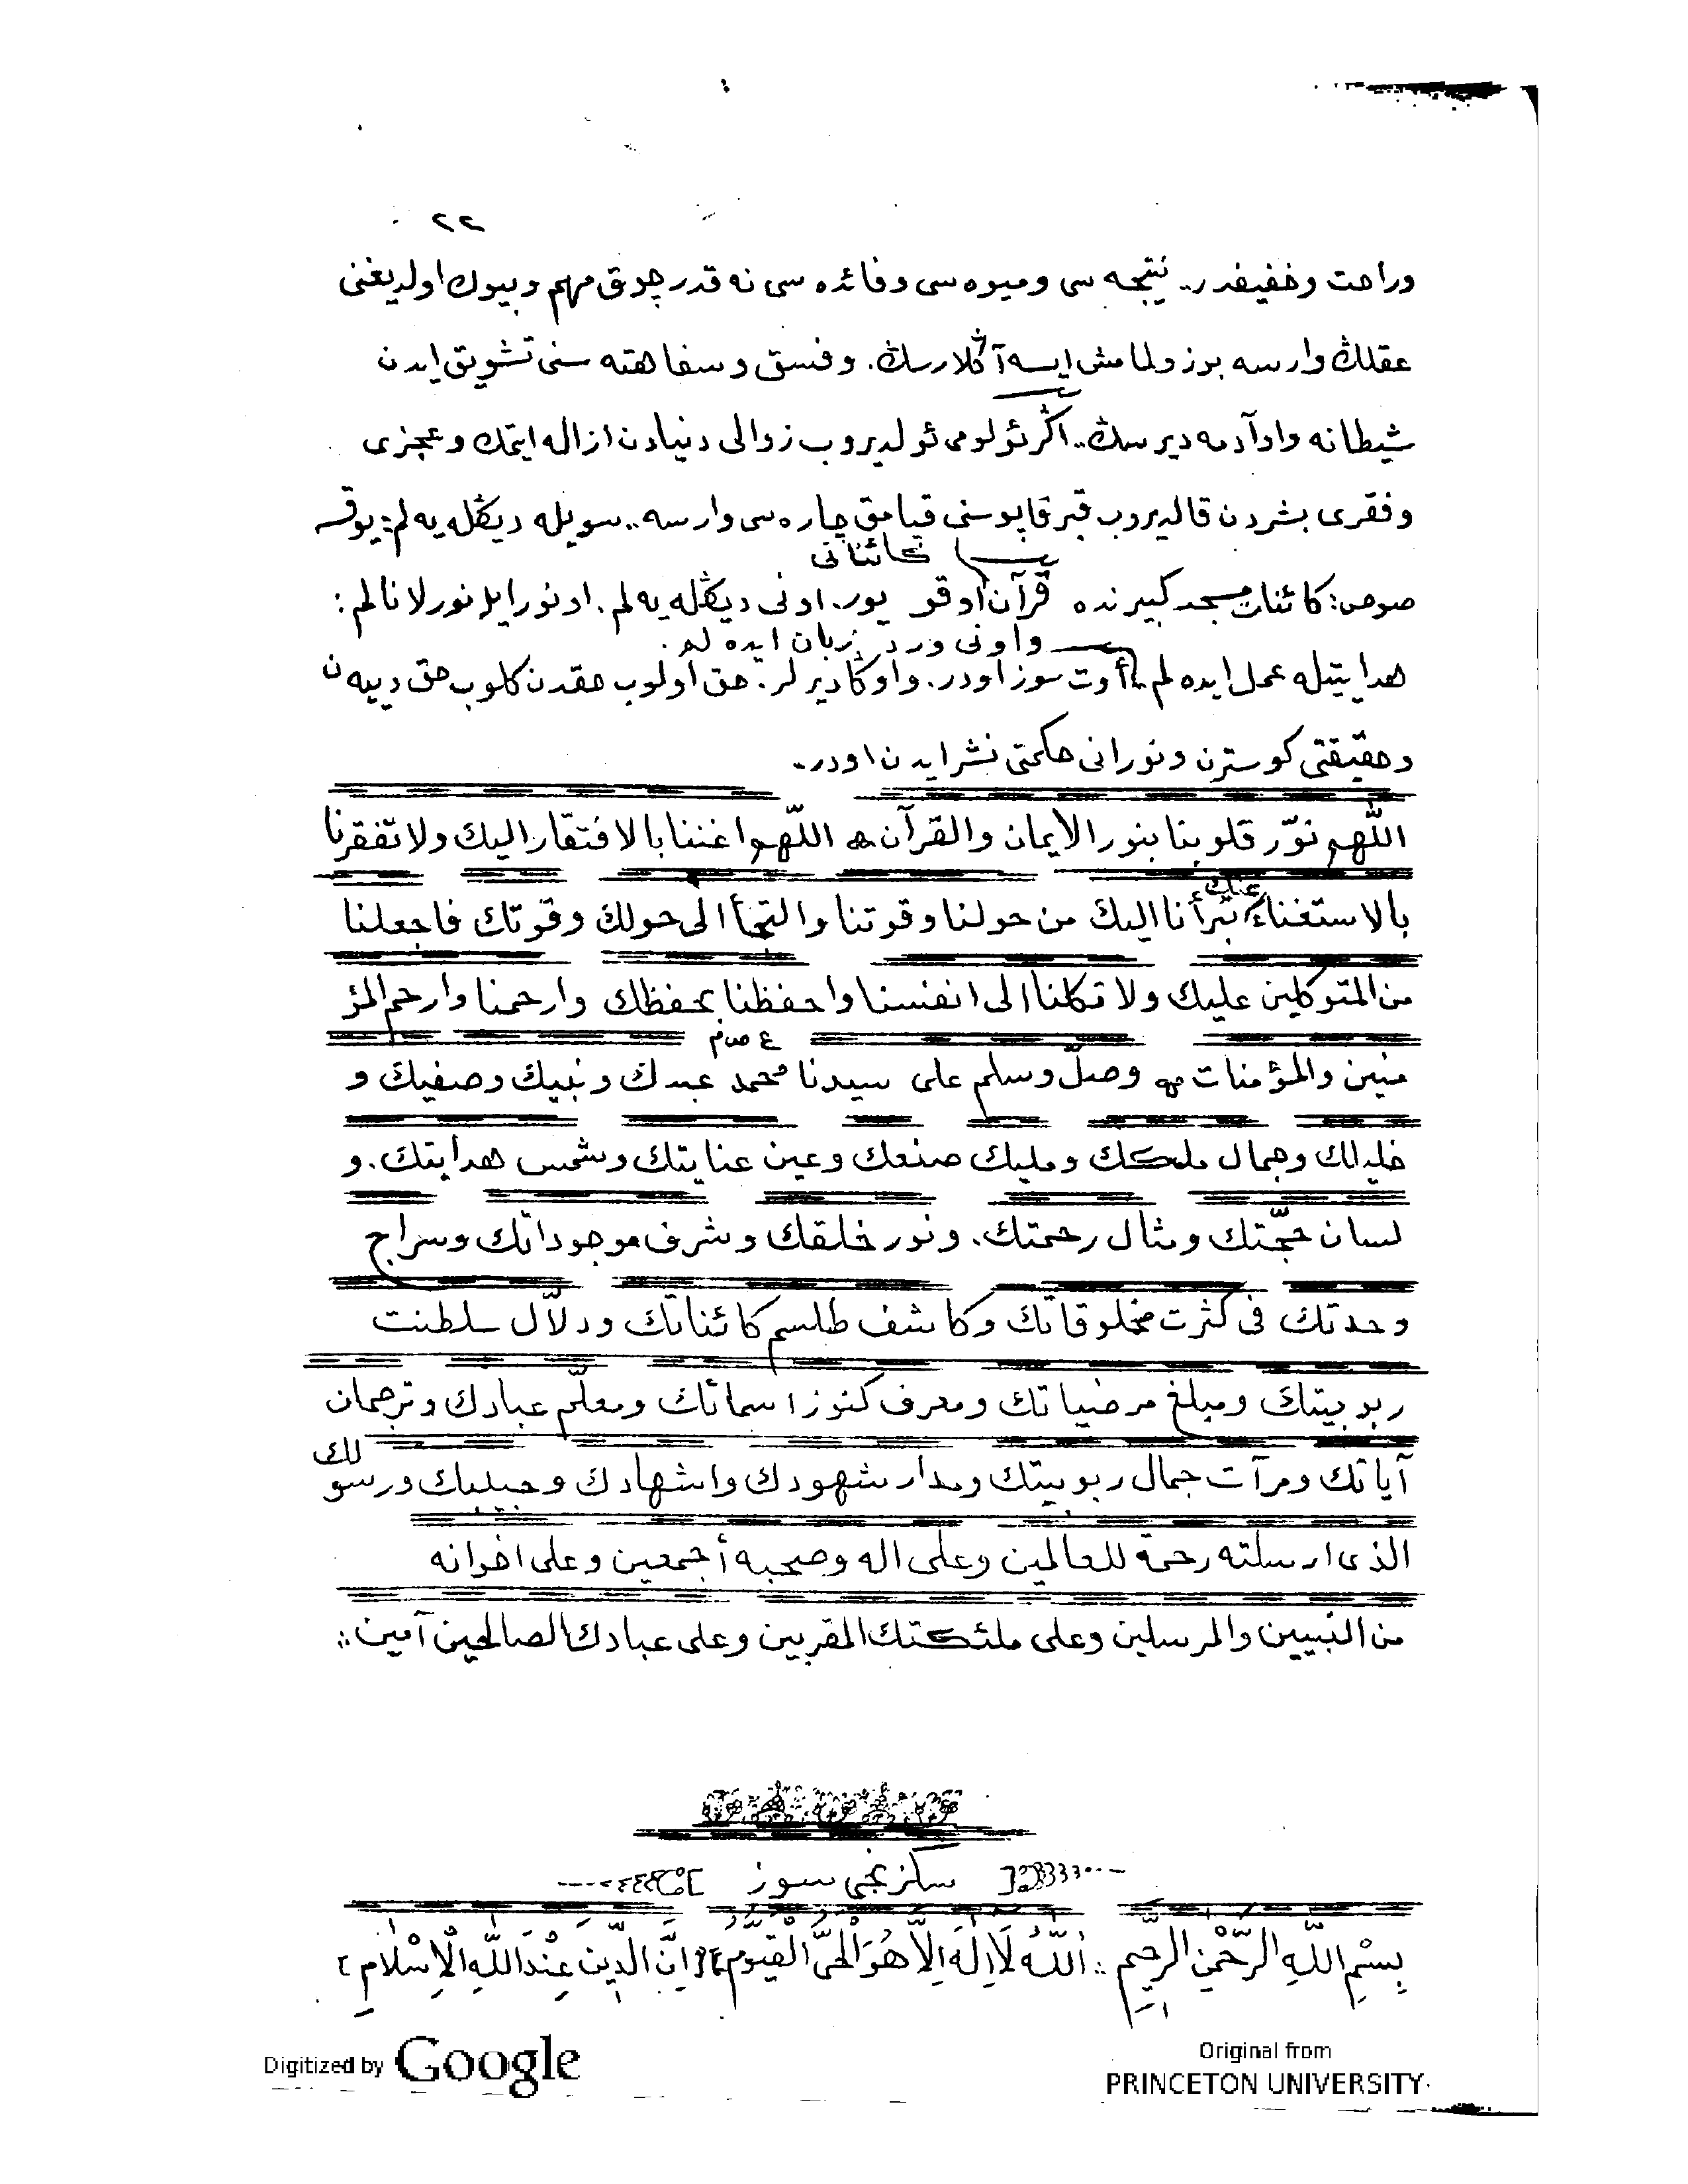 ٢٢
وراحت وخفيفدر.. نتيجه سى وميوه سى وفائده سى نه قدر چوق مهم وبيوك اولديغنى
عقلڭ وارسه بوزولمامش ايسه آڭلارسڭ. وفسق وسفاهته سنى تشويق ايدن
شيطانه واو آدمه ديرسڭ.. اگر ئولومى ئولديروب زوالى دنيادن ازاله ايتمك وعجزى
وفقرى بشردن قالديروب قبر قاپوسنى قپامق چاره سى وارسه.. سويله ديڭله يه لم: يوقسه
كائناتى
صوص: كائنات مسجد كبيرنده قرآن اوقويور. اونى ديڭله يه لم. او نور ايله نورلانالم:
واونى ورد زبان ايده لم.
هدايتيله عمل ايده لم.. أوت سوز اودر. واوڭا ديرلر. حق اولوب حقدن كلوب حق دييه ن
وحقيقتى كوسترن ونورانى حكمتى نشر ايدن اودر..
اللّهم نوّر قلوبنا بنور الايمان والقرآن اللّهم اغننا بالافتقار اليك ولا تفقرنا
عنك
بالاستغناء تبرأنا اليك من حولنا وقوتنا والتجأ الى حولك وقوتك فاجعلنا
من المتوكلين عليك ولا تكلنا الى انفسنا واحفظنا بحفظك وارحمنا وارحم المؤ
ع ص م
منين والمؤمنات وصلّ وسلم على سيدنا محمد عبدك ونبيك وصفيك و
خليلك وجمال ملكك ومليك صنعك وعين عنايتك وشمس هدايتك. و
لسان حجّتك ومثال رحمتك. ونور خلقك وشرف موجوداتك وسراج
وحدتك فى كثرت مخلوقاتك وكاشف طلسم كائناتك ودلاّل سلطنت
ربوبيتك ومبلغ مرضياتك ومعرف كنوز اسمائك ومعلّم عبادك وترجمان
آياتك ومرآت جمال ربوبيتك ومدار شهودك واشهادك وحبيبك ورسولك
الذى ارسلته رحمة للعالمين وعلى اله وصحبه أجمعين وعلى اخوانه
من النبيين والمرسلين وعلى ملئكتك المقربين وعلى عبادك الصالحين آمين
سكزنجى سوز
بِسْمِ اللّٰهِ الرَّحْمٰنِ الرَّحِيمِ اَللّٰهُ لَا اِلٰهَ اِلاَّ هُوَ الْحَىُّ الْقَيُّومُ اِنَّ الدِّينَ عِنْدَ اللّٰهِ الْاِسْلَامِ
Digitized by Google
Original from
PRINCETON UNIVERSITY